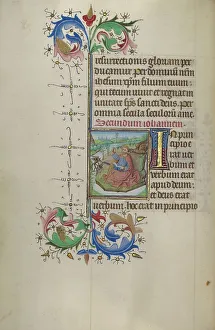 resurrectionis gloriam per
ducamur per dominū nrm
ihesum xpm filium tuum
qui tecum uiuit et regnat in
unitate sps sancti deus per
omnia secula seculorū amē
Secundum iohannem
In prin
cipio e
rat uer
bum et
uerbum erat
apud deum
et deus erat
uerbum hoc erat in principio